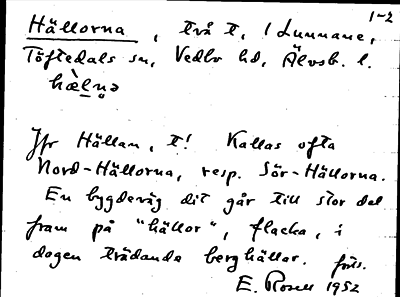 1-2
Hällorna, två t, i Lunnane,
Töftedals sn, Vedbo hd, Älvsb. l.
Jfr Hällan, t! Kallas ofta
Nord-Hällorna, resp. Sör-Hällorna.
En bygdeväg dit går till stor del
fram på "hällor", flacka, i
dagen trädande berghällar. forts.
E. Rosell 1952